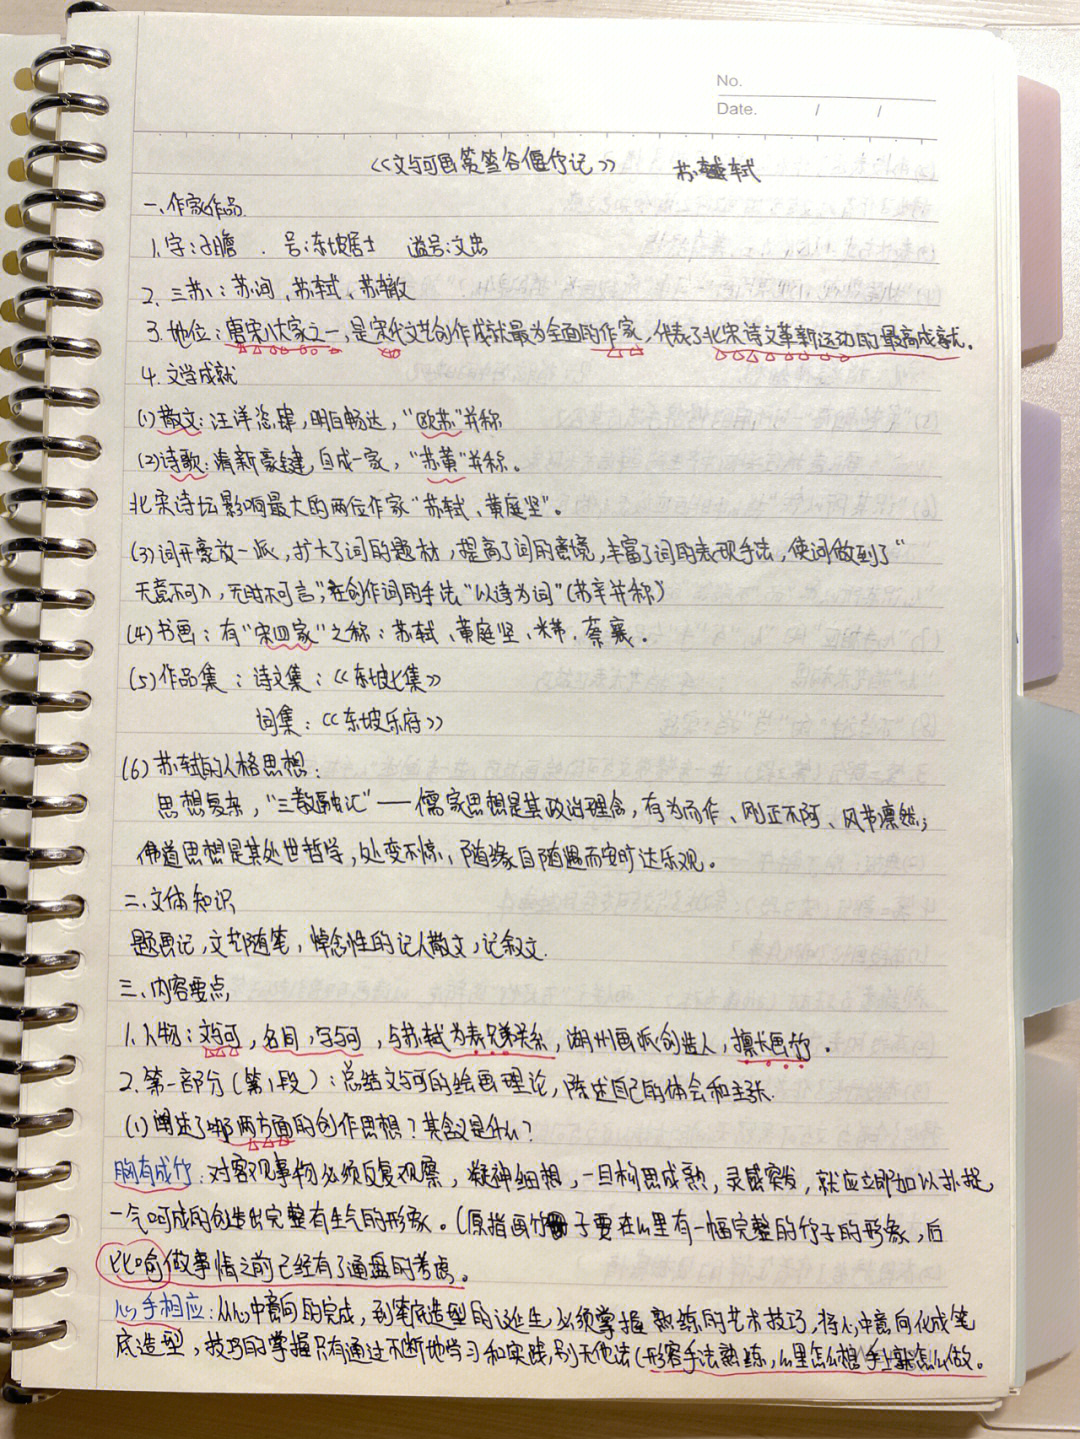 No.
Date. / /
《文与可画筼筜谷偃竹记》 苏轼
一、作家作品
1.字:子瞻 . 号:东坡居士 谥号:文忠
2.三苏:苏洵、苏轼、苏辙
3.地位:唐宋八大家之一,是宋代文艺创作成就最为全面的作家,代表了北宋诗文革新运动的最高成就.
4.文学成就
(1)散文:汪洋恣肆,明白畅达,"欧苏"并称
(2)诗歌:清新豪健,自成一家,"苏黄"并称。
北宋诗坛影响最大的两位作家"苏轼、黄庭坚"。
(3)词开豪放一派,扩大了词的题材,提高了词的意境,丰富了词的表现手法,使词做到了"
无意不可入,无时不可言";在创作词的手法"以诗为词"(苏辛并称)
(4)书画:有"宋四家"之称:苏轼、黄庭坚、米芾、蔡襄。
(5)作品集:诗文集:《东坡七集》
词集:《东坡乐府》
(6)苏轼的人格思想:
思想复杂,"三教融汇"——儒家思想是其政治理念,有为而作、刚正不阿、风节凛然;
佛道思想是其处世哲学,处变不惊,随缘自随遇而安时达乐观。
二、文体知识
题画记,文艺随笔,悼念性的记人散文,记叙文.
三、内容要点
1.人物:文与可,名同,字与可,与苏轼为表兄弟关系,湖州画派创始人,擅长画竹.
2.第一部分(第1段):总结文与可的绘画理论,陈述自己的体会和主张.
(1)阐述了哪两方面的创作思想?其含义是什么?
胸有成竹:对客观事物必须反复观察,凝神细想,一旦构思成熟,灵感突发,就应立即加以扑捉
一气呵成的创造出完整有生气的形象。(原指画竹子要在心里有一幅完整的竹子的形象,后
比喻做事情之前已经有了通盘的考虑。
心手相应:从心中意向的完成,到笔底造型的诞生,必须掌握熟练的艺术技巧,将心中意向化成笔
底造型,技巧的掌握只有通过不断地学习和实践,别无他法(形容手法熟练,心里怎么想手上就怎么做。